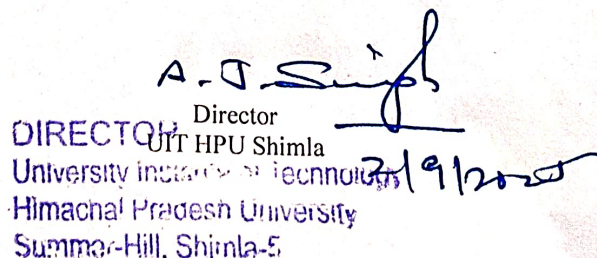 A. J. Singh
Director
UIT HPU Shimla
DIRECTOR
University Institute of Technology
Himachal Pradesh University
Summer-Hill, Shimla-5